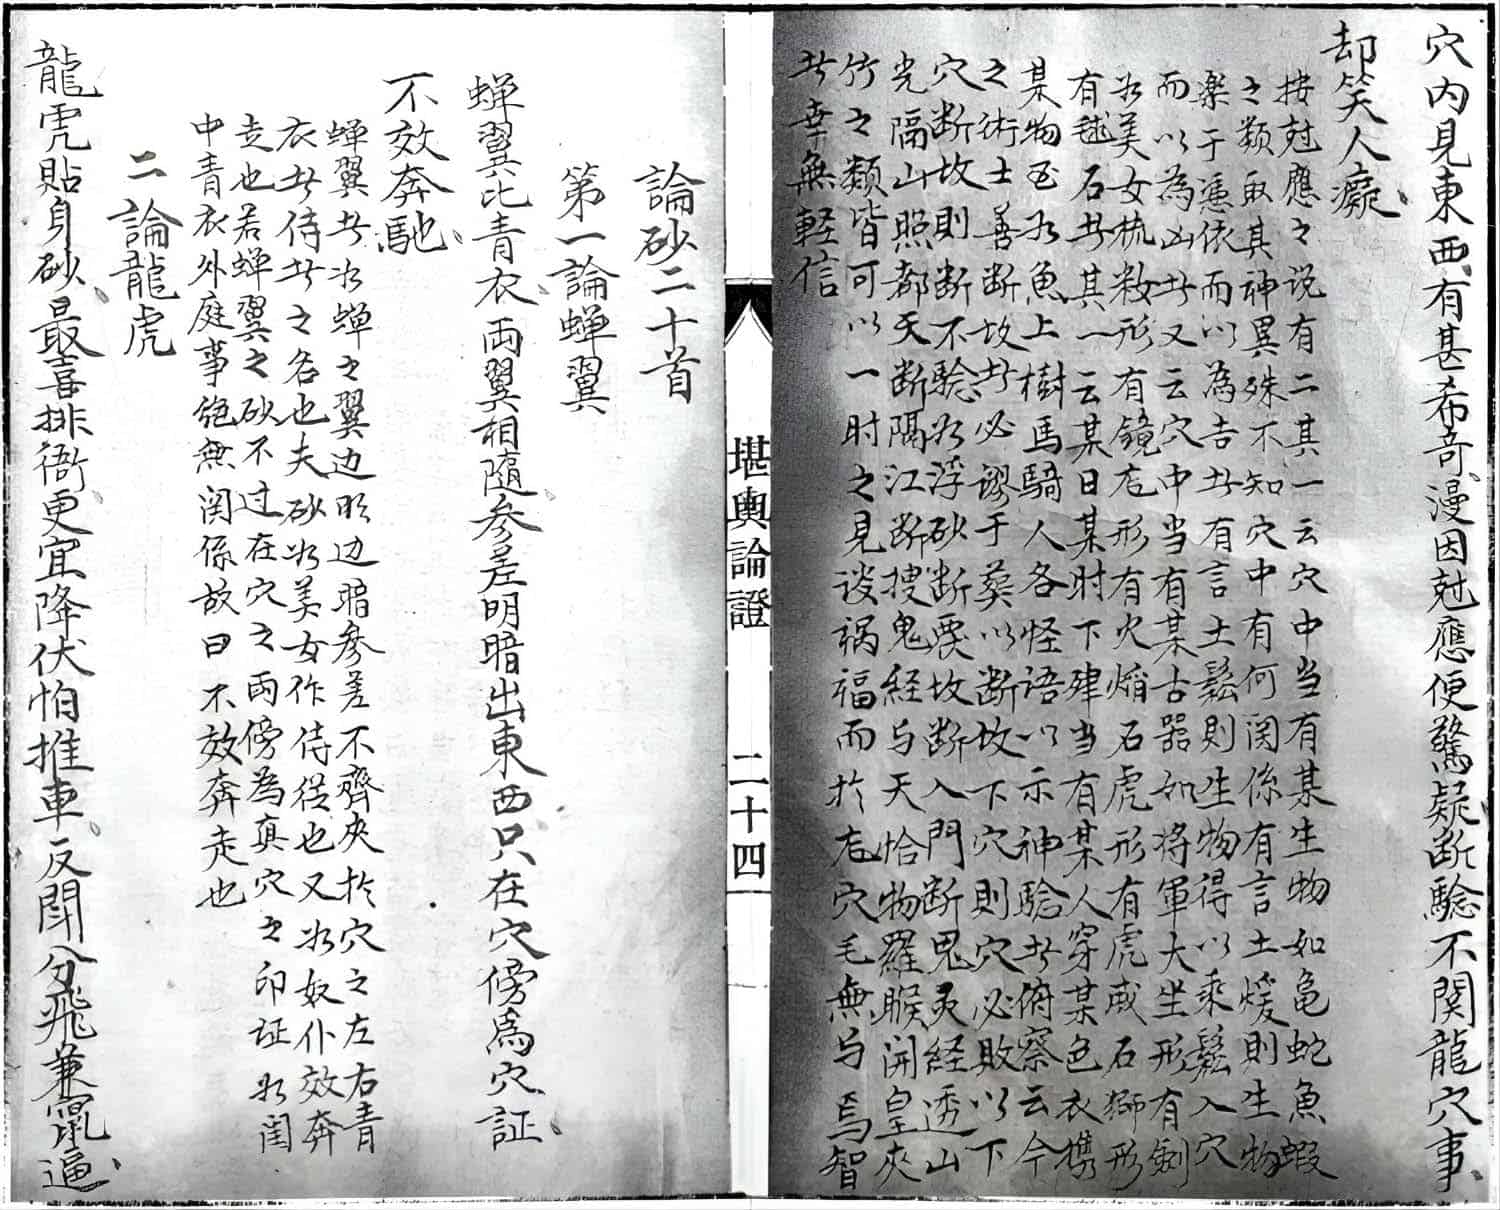 穴内見東西有甚希奇漫因尅應便驚疑断騐不関龍穴事
却笑人癡
按尅應之说有二其一云穴中当有某生物如龟蛇魚蝦
之類取其神異殊不知穴中有何関係有言土煖則生物
楽于憑依而以為吉者有言土鬆則生物得以乘鬆入穴
而以為凶者又云穴中当有某古器如将軍大坐形有劍
如美女梳粧形有鏡
形有火熖石虎形有虎或石獅形
有毬石者其一云某日某时下肂当有某人穿某色衣携
某物至如魚上樹馬騎人各怪语以示神騐者俯察云今
之術士善断故者必謬于葬以断故下穴則穴必敗以下
穴断故則断不騐如浮砂断要故断入門断鬼灵経透山
光隔山照都天断隔江断搜鬼経与天恰物羅睺開皇夾
竹之類皆可以一时之見谈祸福而扵
穴毛無与焉智
者幸無軽信
堪輿論證
二十四
論砂二十首
第一論蝉翼
蝉翼比青衣両翼相隨参差明暗出東西只在穴傍爲穴証
不效奔馳
蝉翼者如蝉之翼边明边暗参差不齊夾扵穴之左右青
衣者侍者之名也夫砂如美女作侍從也又如奴仆效奔
走也若蝉翼之砂不过在穴之両傍為真穴之印证如闺
中青衣外庭事絶無関係故曰不效奔走也
二論龍虎
龍虎貼身砂最喜排衙更宜降伏怕推車反閗分飛兼竄逼